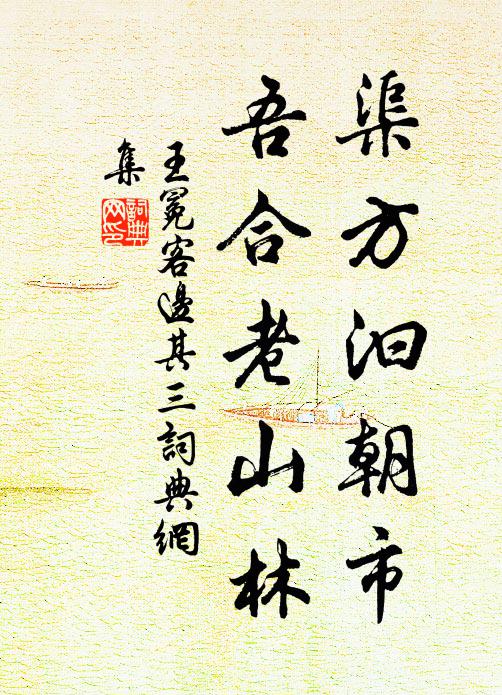 渠方汩朝市
吾合老山林
王冕客邊其三詞典網
集
詞典網印